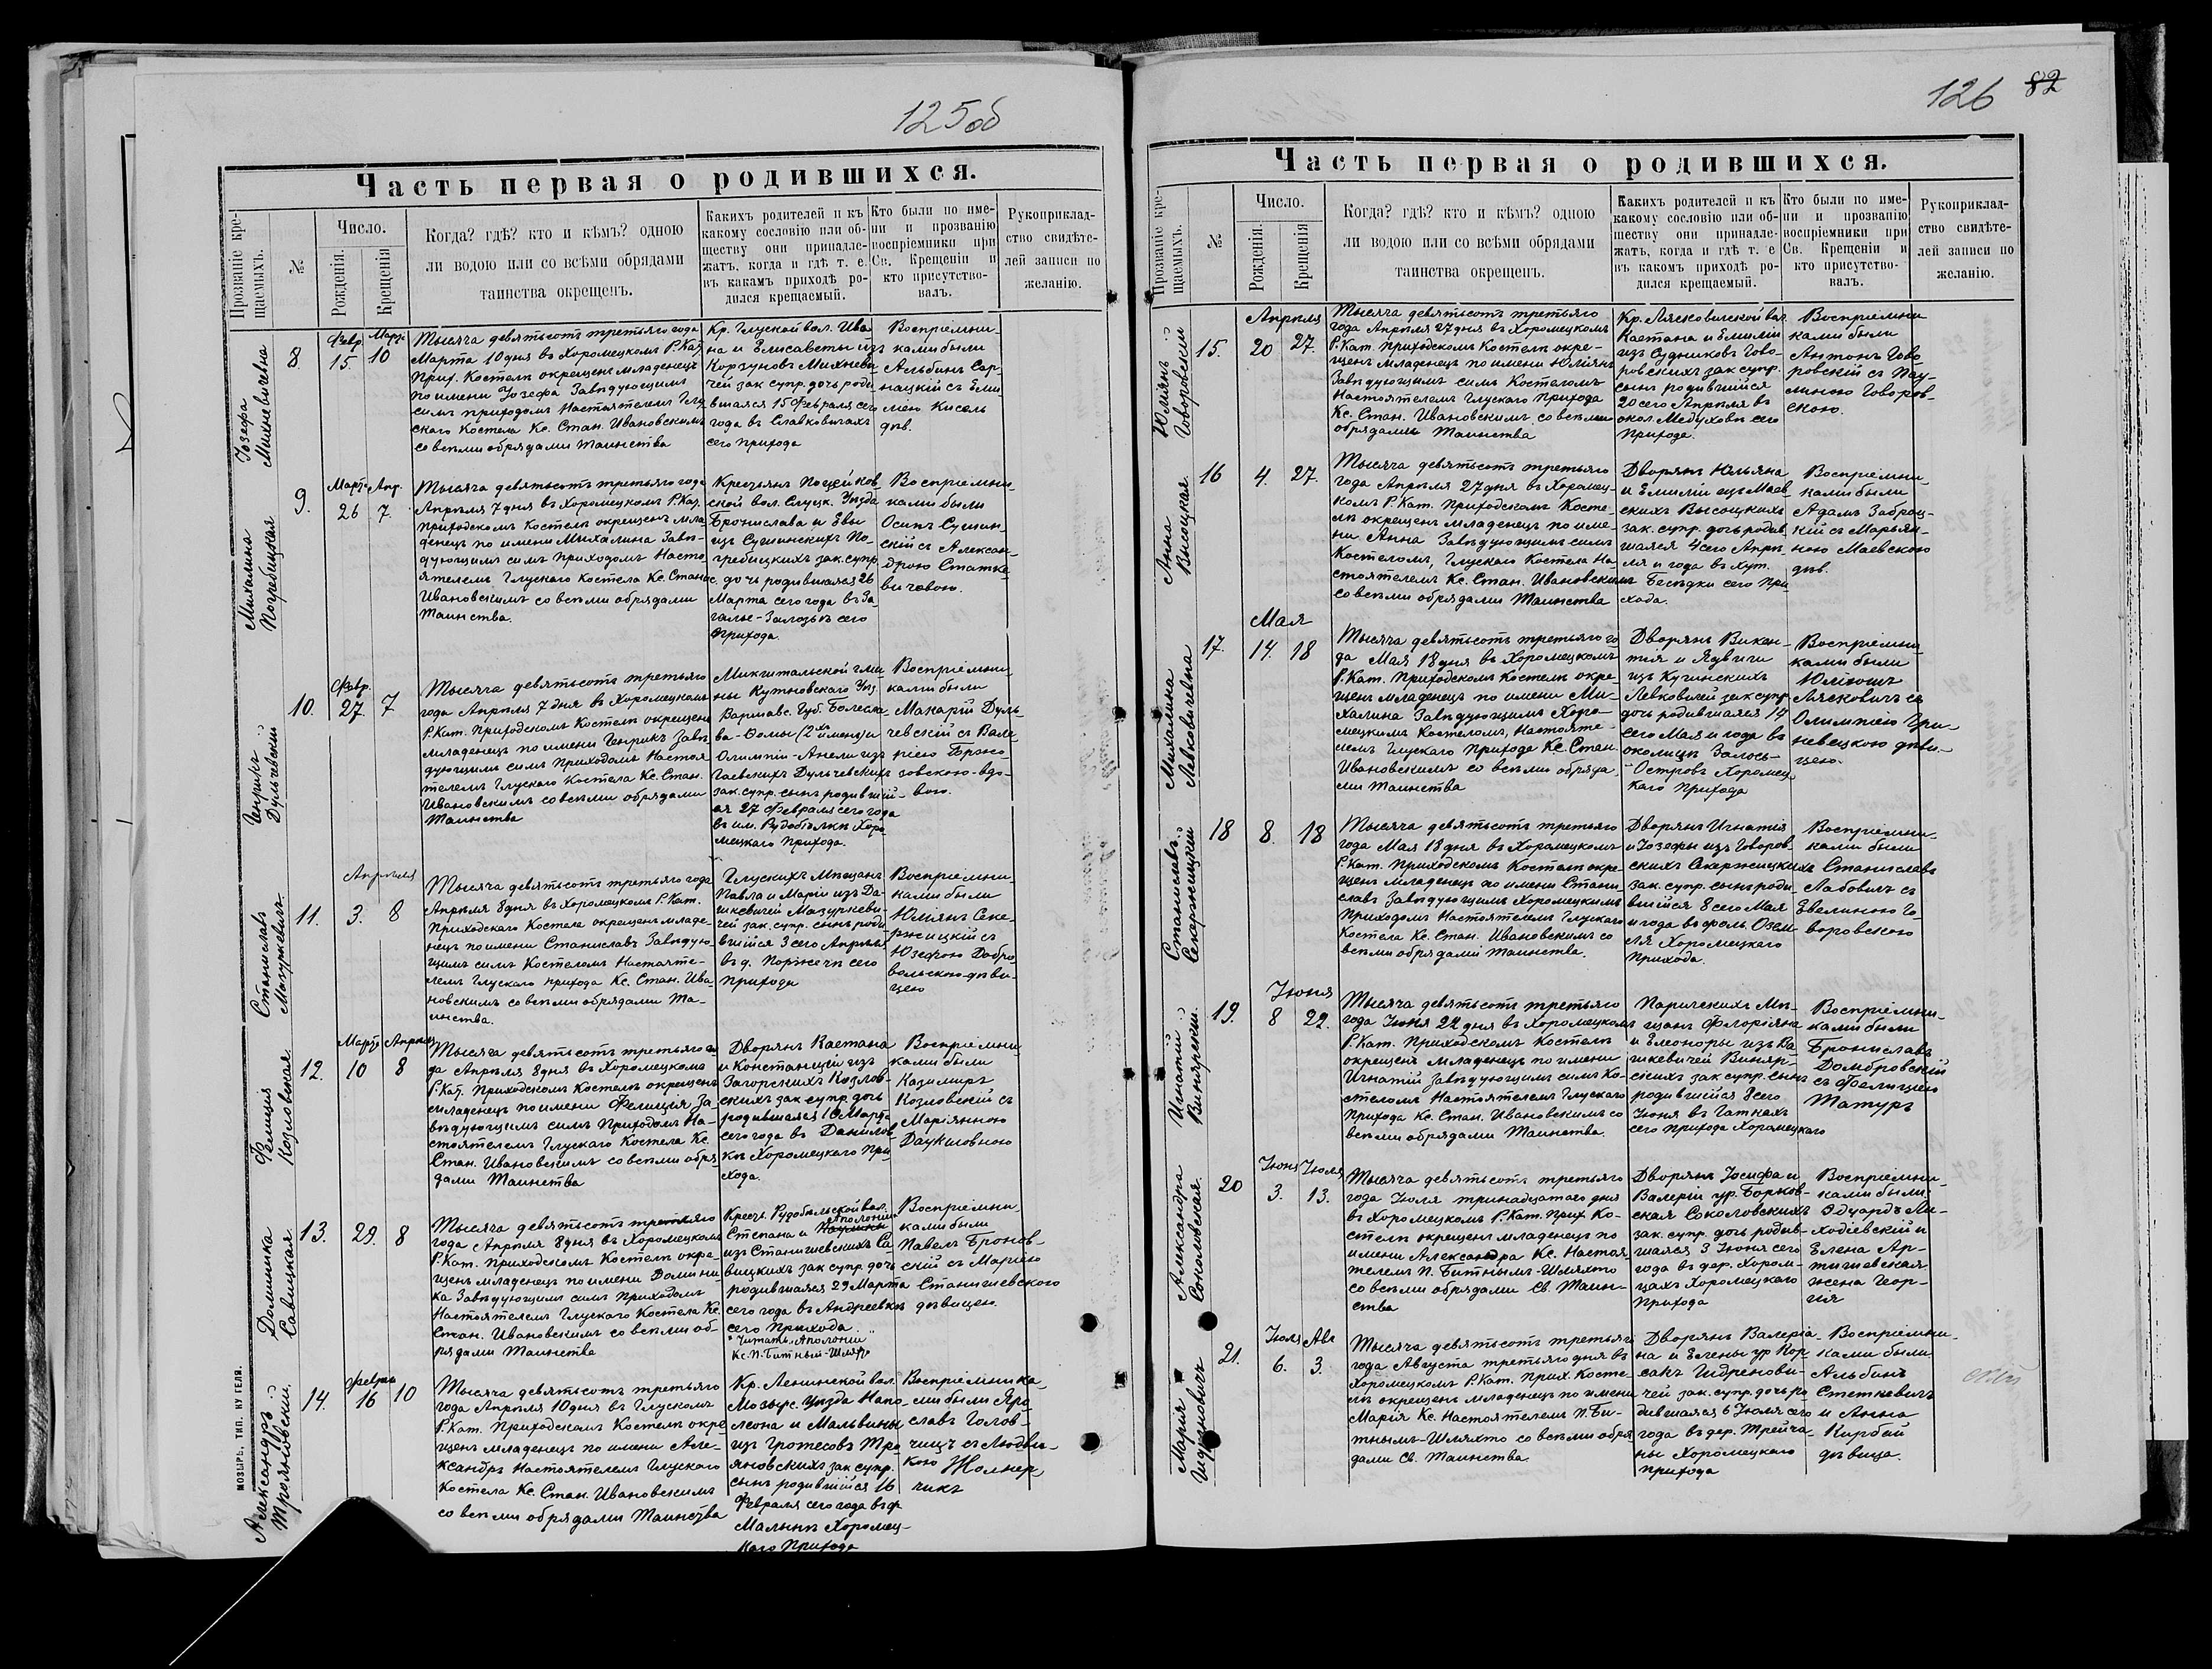 125об
Часть первая о родившихся.
Прозваніе кре-
щаемыхъ.
№
Число.
Рожденія.
Крещенія
Когда? гдѣ? кто и кѣмъ? одною
ли водою или со всѣми обрядами
таинства окрещенъ.
Какихъ родителей и къ
какому сословію или об-
ществу они принадле-
жатъ, когда и гдѣ т. е.
въ какамъ приходѣ ро-
дился крещаемый.
Кто были по име-
ни и прозванію
воспріемники при
Св. Крещеніи и
кто присутство-
валъ.
Рукоприклад-
ство свидѣте-
лей записи по
желанію.
Іозефа
Михневичевна
8
Февр. Март.
15. 10
Тысяча девятьсотъ третьяго года
Марта 10 дня въ Хоромецкомъ Р. Кат.
Прих. Костелѣ окрещенъ младенецъ
по имени Іозефа Завѣдующимъ
симъ приходомъ Настоятелемъ Глу
скаго Костела Кс. Стан. Ивановскимъ
со всѣми обрядами Таинства
Кр. Глуской вол. Ива
на и Елисаветы изъ
Корзуновъ Михневи
чей зак супр. дочь роди
вшаяся 15 Февраля сего
года въ Славковичахъ
сего прихода
Воспріемни-
ками были
Альбинъ Сар-
нацкій съ Еми
ліею Кисель
дѣв.
Михалина
Погребицкая
9.
Март. Апр.
26 7.
Тысяча девятьсотъ третьяго года
Апрѣля 7 дня въ Хоромецкомъ Р. Кат.
приходскомъ Костелѣ окрещенъ мла
денецъ по имени Михалина Завѣ-
дующимъ симъ приходомъ Насто
ятелемъ Глускаго Костела Кс. Стан.
Ивановскимъ со всѣми обрядами
Таинства.
Крестьянъ Поцейков
ской вол. Слуцк. Уѣзда
Бронислава и Евы
изъ Сушинскихъ По-
гребицкихъ зак. супр.
дочь родившаяся 26
Марта сего года въ За
галье-Залозьѣ сего
прихода.
Воспріемни-
ками были
Осипъ Сушин-
скій съ Алексан-
дрою Статке-
вичовою.
Генрикъ
Дульчевскій
10.
Февр.
27. 7
Тысяча девятьсотъ третьяго
года Апрѣля 7 дня въ Хоромецкомъ
Р. Кат. Приходскомъ Костелѣ окрещенъ
младенецъ по имени Генрикъ Завѣ
дующимъ симъ Приходомъ Настоя
телемъ Глускаго Костела Кс. Стан.
Ивановскимъ со всѣми обрядами
Таинства
Микштальской гми
ны Кутновскаго Уѣз.
Варшавс. Губ. Болесла
ва-Ѳомы (2хъ именъ) и
Олимпіи-Анели изъ
Гаевскихъ Дульчевскихъ
зак. супр. сынъ родившій
ся 27 Февраля сего года
въ им. Рудобѣлкѣ Хоро
мецкаго Прихода.
Воспріемни-
ками были
Макарій Дуль-
чевскій съ Вале
ріею Бржо-
зовскою-вдо-
вою.
Станиславъ
Мазуркевичъ
11.
Апрѣля
3. 8
Тысяча девятьсотъ третьяго года
Апрѣля 8 дня въ Хоромецкомъ Р. Кат.
Приходскаго Костела окрещенъ младе-
нецъ по имени Станиславъ Завѣдую-
щимъ симъ Костеломъ Настояте-
лемъ Глускаго прихода Кс. Стан. Ива
новскимъ со всѣми обрядами Та-
инства.
Глускихъ Мѣщанъ
Павла и Маріи изъ Да-
шкевичей Мазуркеви-
чей зак. супр. сынъ роди
вшійся 3 сего Апрѣля
въ д. Порѣчьѣ сего
прихода
Воспріемни-
ками были
Юліянъ Секе-
ржицкій съ
Юзефою Добро-
вольскою-дѣви-
цею
Фелиція
Козловская
12.
Март. Апрѣля
10 8
Тысяча девятьсотъ третьяго го
да Апрѣля 8 дня въ Хоромецкомъ
Р. Кат. Приходскомъ Костелѣ окрещенъ
младенецъ по имени Фелиція За
вѣдующимъ симъ Приходомъ На-
стоятелемъ Глускаго Костела Кс.
Стан. Ивановскимъ со всѣми обря
дами Таинства
Дворянъ Каетана
и Констанціи изъ
Загорскихъ Козлов-
скихъ зак супр. дочь
родившаяся 10 Марта
сего года въ Данилов
кѣ Хоромецкаго При
хода.
Воспріемни-
ками были
Казимиръ
Козловскій съ
Маріянною
Даукшовною
Доминика
Савицкая
13.
29. 8
Тысяча девятьсотъ третьяго
года Апрѣля 8 дня въ Хоромецкомъ
Р. Кат. Приходскомъ Костелѣ окре
щенъ младенецъ по имени Домини
ка Завѣдующимъ симъ Приходомъ
Настоятелемъ Глускаго Костела Кс.
Стан. Ивановскимъ со всѣми об-
рядами Таинства
Крест. Рудобѣльской вол.
Степана и Аполоніи
изъ Станишевскихъ Са
вицкихъ зак супр. дочь
родившаяся 29 Марта
сего года въ Андреевкѣ
сего Прихода.
Читать „Аполоніи“
Кс. П. Битный-Шляхто
Воспріемни
ками были
Павелъ Бронов-
скій съ Маріею
Станишевскою
дѣвицею.
Александръ
Трояновскій.
14.
Февраль
16 10
Тысяча девятьсотъ третьяго
года Апрѣля 10 дня въ Глускомъ
Р. Кат. Приходскомъ Костелѣ окре
щенъ младенецъ по имени Але-
ксандръ Настоятелемъ Глускаго
Костела Кс. Стан. Ивановскимъ
со всѣми обрядами Таинства
Кр. Ленинской вол.
Мозыр. Уѣзда Напо-
леона и Мальвины
изъ Гротесовъ Тро
яновскихъ зак супр.
сынъ родившійся 16
Февраля сего года въ ф.
Малынѣ Хоромец-
каго Прихода
Воспріемника-
ми были Яро-
славъ Голов-
чицъ съ Людви-
кою Жолнер-
чикъ
МОЗЫРЬ, ТИП. НУГЕЛЯ.
126 82
Часть первая о родившихся.
Прозваніе кре-
щаемыхъ.
№
Число.
Рожденія.
Крещенія
Когда? гдѣ? кто и кѣмъ? одною
ли водою или со всѣми обрядами
таинства окрещенъ.
Какихъ родителей и къ
какому сословію или об-
ществу они принадле-
жатъ, когда и гдѣ т. е
въ какомъ приходѣ ро-
дился крещаемый.
Кто были по име-
ни и прозванію
воспріемники при
Св. Крещеніи и
кто присутство-
валъ.
Рукоприклад-
ство свидѣте-
лей записи по
желанію.
Юліянъ
Говоровскій
15.
Апрѣля
20 27.
Тысяча девятьсотъ третьяго
года Апрѣля 27 дня въ Хоромецкомъ
Р. Кат. Приходскомъ Костелѣ окре-
щенъ младенецъ по имени Юліянъ
Завѣдующимъ симъ Костеломъ
Настоятелемъ Глускаго Прихода
Кс. Стан. Ивановскимъ со всѣми
обрядами Таинства
Кр. Лясковичской вол.
Каетана и Емиліи
изъ Судниковъ Гово-
ровскихъ зак супр.
сынъ родившійся
20 сего Апрѣля въ
окол. Медуховѣ сего
Прихода.
Воспріемни
ками были
Антонъ Гово
ровскій съ Пау-
линою Говоров-
скою.
Анна
Высоцкая.
16
4. 27.
Тысяча девятьсотъ третьяго
года Апрѣля 27 дня въ Хоромец-
комъ Р. Кат. Приходскомъ Косте-
лѣ окрещенъ младенецъ по име-
ни Анна Завѣдующимъ симъ
Костеломъ, Глускаго Костела На-
стоятелемъ Кс. Стан. Ивановскимъ
со всѣми обрядами Таинства
Дворянъ Юльяна
и Емиліи изъ Маев
скихъ Высоцкихъ
зак. супр. дочь родив
шаяся 4 сего Апрѣ-
ля и года въ хут.
Бесѣдки сего При
хода.
Воспріемни-
ками были
Адамъ Заброц-
кій съ Марьян-
ною Маевскою
дѣв.
Михалина
Левковичевна
17.
Мая
14. 18
Тысяча девятьсотъ третьяго го
да Мая 18 дня въ Хоромецкомъ
Р. Кат. Приходскомъ Костелѣ окре-
щенъ младенецъ по имени Ми-
халина Завѣдующимъ Хоро-
мецкимъ Костеломъ, Настояте-
лемъ Глускаго Прихода Кс. Стан
Ивановскимъ со всѣми обряда-
ми Таинства
Дворянъ Викен-
тія и Ядвиги
изъ Кучинскихъ
Левковичей зак супр.
дочь родившаяся 14
сего Мая и года въ
околицѣ Залось-
Островъ Хоромец
каго Прихода
Воспріемни
ками были
Юліюшъ
Ляскевичъ съ
Олимпіею Гри-
невецкою дѣви-
цею.
Станиславъ
Секержицкій
18
8. 18
Тысяча девятьсотъ третьяго
года Мая 18 дня въ Хоромецкомъ
Р. Кат. Приходскомъ Костелѣ окре-
щенъ младенецъ по имени Стани
славъ Завѣдующимъ Хоромецкимъ
Приходомъ Настоятелемъ Глускаго
Костела Кс. Стан. Ивановскимъ со
всѣми обрядами Таинства.
Дворянъ Игнатія
и Іозефы изъ Говоров
скихъ Секержицкихъ
зак. супр. сынъ роди-
вшійся 8 сего Мая
и года въ фоль. Озем
ля Хоромецкаго
Прихода.
Воспріемни-
ками были
Станиславъ
Лабовичъ съ
Евелиною Го-
воровскою
Игнатій
Винярскій.
19.
Іюня
8 22.
Тысяча девятьсотъ третьяго
года Іюня 22 дня въ Хоромецкомъ
Р. Кат. Приходскомъ Костелѣ
окрещенъ младенецъ по имени
Игнатій Завѣдующимъ симъ Ко-
стеломъ Настоятелемъ Глускаго
Прихода Кс. Стан. Ивановскимъ со
всѣми обрядами Таинства.
Паричскихъ Мѣ-
щанъ Флоріяна
и Елеоноры изъ Ва-
шкевичей Виняр-
скихъ зак супр. сынъ
родившійся 8 сего
Іюня въ Гаткахъ
сего прихода Хоромецкаго
Воспріемни-
ками были
Брониславъ
Домбровскій
съ Фелиціею
Татуръ
Александра
Соколовская.
20
Іюня Іюля
3. 13.
Тысяча девятьсотъ третьяго
года Іюля тринадцатаго дня
въ Хоромецкомъ Р. Кат. Прих Ко-
стелѣ окрещенъ младенецъ по
имени Александра Кс. Настоя
телемъ П. Битнымъ-Шляхто
со всѣми обрядами Св. Таин-
ства
Дворянъ Іосифа и
Валеріи ур. Борков-
ская Соколовскихъ
зак. супр. дочь родив-
шаяся 3 Іюня сего
года въ дер. Хором-
цахъ Хоромецкаго
Прихода
Воспріемни-
ками были
Эдуардъ Ли-
ходіевскій и
Елена Ар-
тишевская
жена Геор-
гія
Марія
Гидрановичъ
21.
Іюля Авг
6. 3.
Тысяча девятьсотъ третьяго
года Августа третьяго дня въ
Хоромецкомъ Р. Кат. Прих. Косте-
лѣ окрещенъ младенецъ по имени
Марія Кс. Настоятелемъ П. Би-
тнымъ-Шляхто со всѣми обря
дами Св. Таинства.
Дворянъ Валеріа-
на и Елены ур Кор
сакъ Гидренови-
чей зак. супр. дочь ро
дившаяся 6 Іюля сего
года въ дер. Трейча
ны Хоромецкаго
прихода
Воспріемни-
ками были
Альбинъ
Стеткевичъ
и Анна
Кирбай
дѣвица.